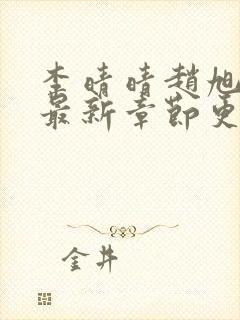 李晴晴趙旭
最新章節更
金井